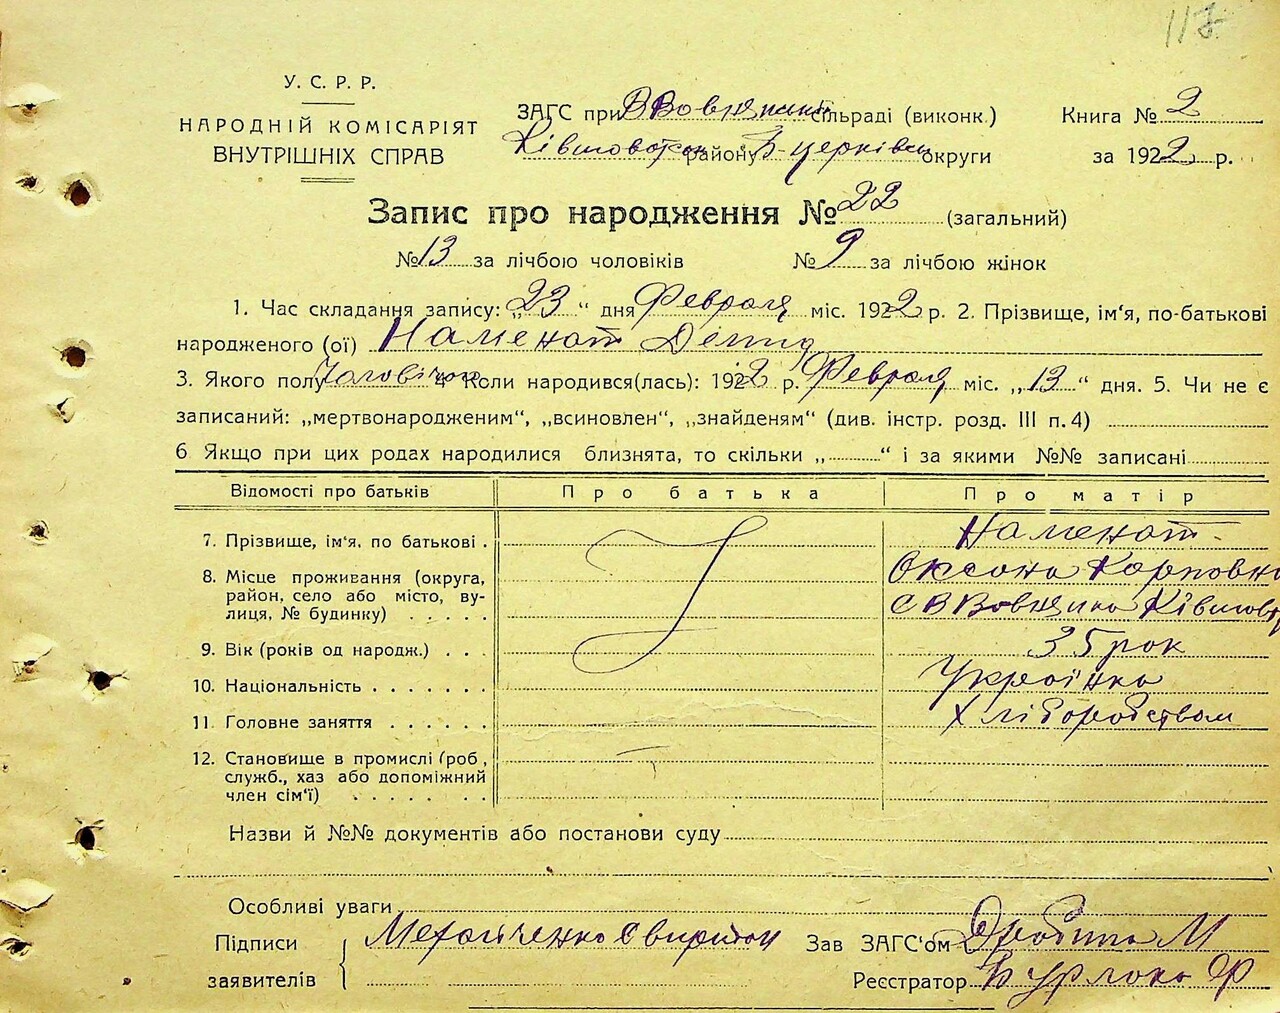 117
У. С. Р. Р.
НАРОДНІЙ КОМІСАРІЯТ
ВНУТРІШНІХ СПРАВ
ЗАГС при сільраді (виконк.)
району Б церківськ округи
Книга № 2
за 1922 р.
Запис про народження № 22 (загальний)
№ 13 за лічбою чоловіків № 9 за лічбою жінок
1. Час складання запису: „23“ дня Февраля міс. 1922 р. 2. Прізвище, ім'я, по-батькові
народженого (ої) Наменат
3. Якого полу Чоловічого 4. Коли народився(лась): 1922 р. Февраля міс. „13“ дня. 5. Чи не є
записаний: „мертвонародженим“, „всиновлен“, „знайденям“ (див. інстр. розд. III п. 4)
6 Якщо при цих родах народилися близнята, то скільки „ “ і за якими №№ записані
Відомості про батьків Про батька Про матір
7. Прізвище, ім'я, по батькові . Наменат
8. Місце проживання (округа, Оксана Карповна
район, село або місто, ву-
лиця, № будинку) . . . . .
9. Вік (років од народж.) . . . 35 рок
10. Національність . . . . . . . Українка
11. Головне заняття . . . . . . Хліборобством
12. Становище в промислі (роб.,
служб., хаз або допоміжний
член сім'ї) . . . . . . .
Назви й №№ документів або постанови суду
Особливі уваги
Підписи
заявителів
Зав ЗАГС'ом М
Реєстратор Бурлака Ф